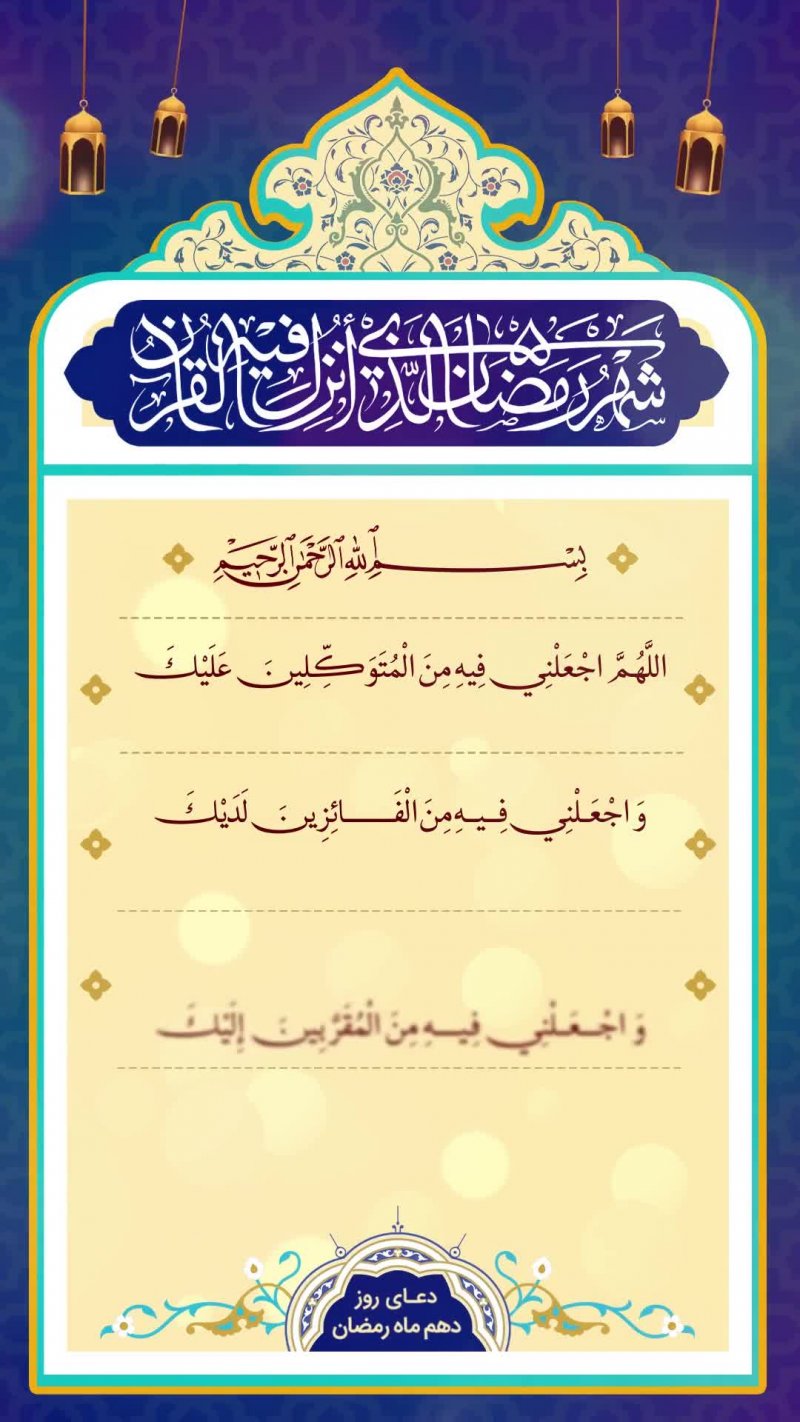 شَهْرُ رَمَضَانَ الَّذِي أُنْزِلَ فِيهِ الْقُرْآنُ
بِسْمِ اللهِ الرَّحْمٰنِ الرَّحِيمِ
اللَّهُمَّ اجْعَلْنِي فِيهِ مِنَ الْمُتَوَكِّلِينَ عَلَيْكَ
وَ اجْعَلْنِي فِيهِ مِنَ الْفَائِزِينَ لَدَيْكَ
وَ اجْعَلْنِي فِيهِ مِنَ الْمُقَرَّبِينَ إِلَيْكَ
دعای روز
دهم ماه رمضان